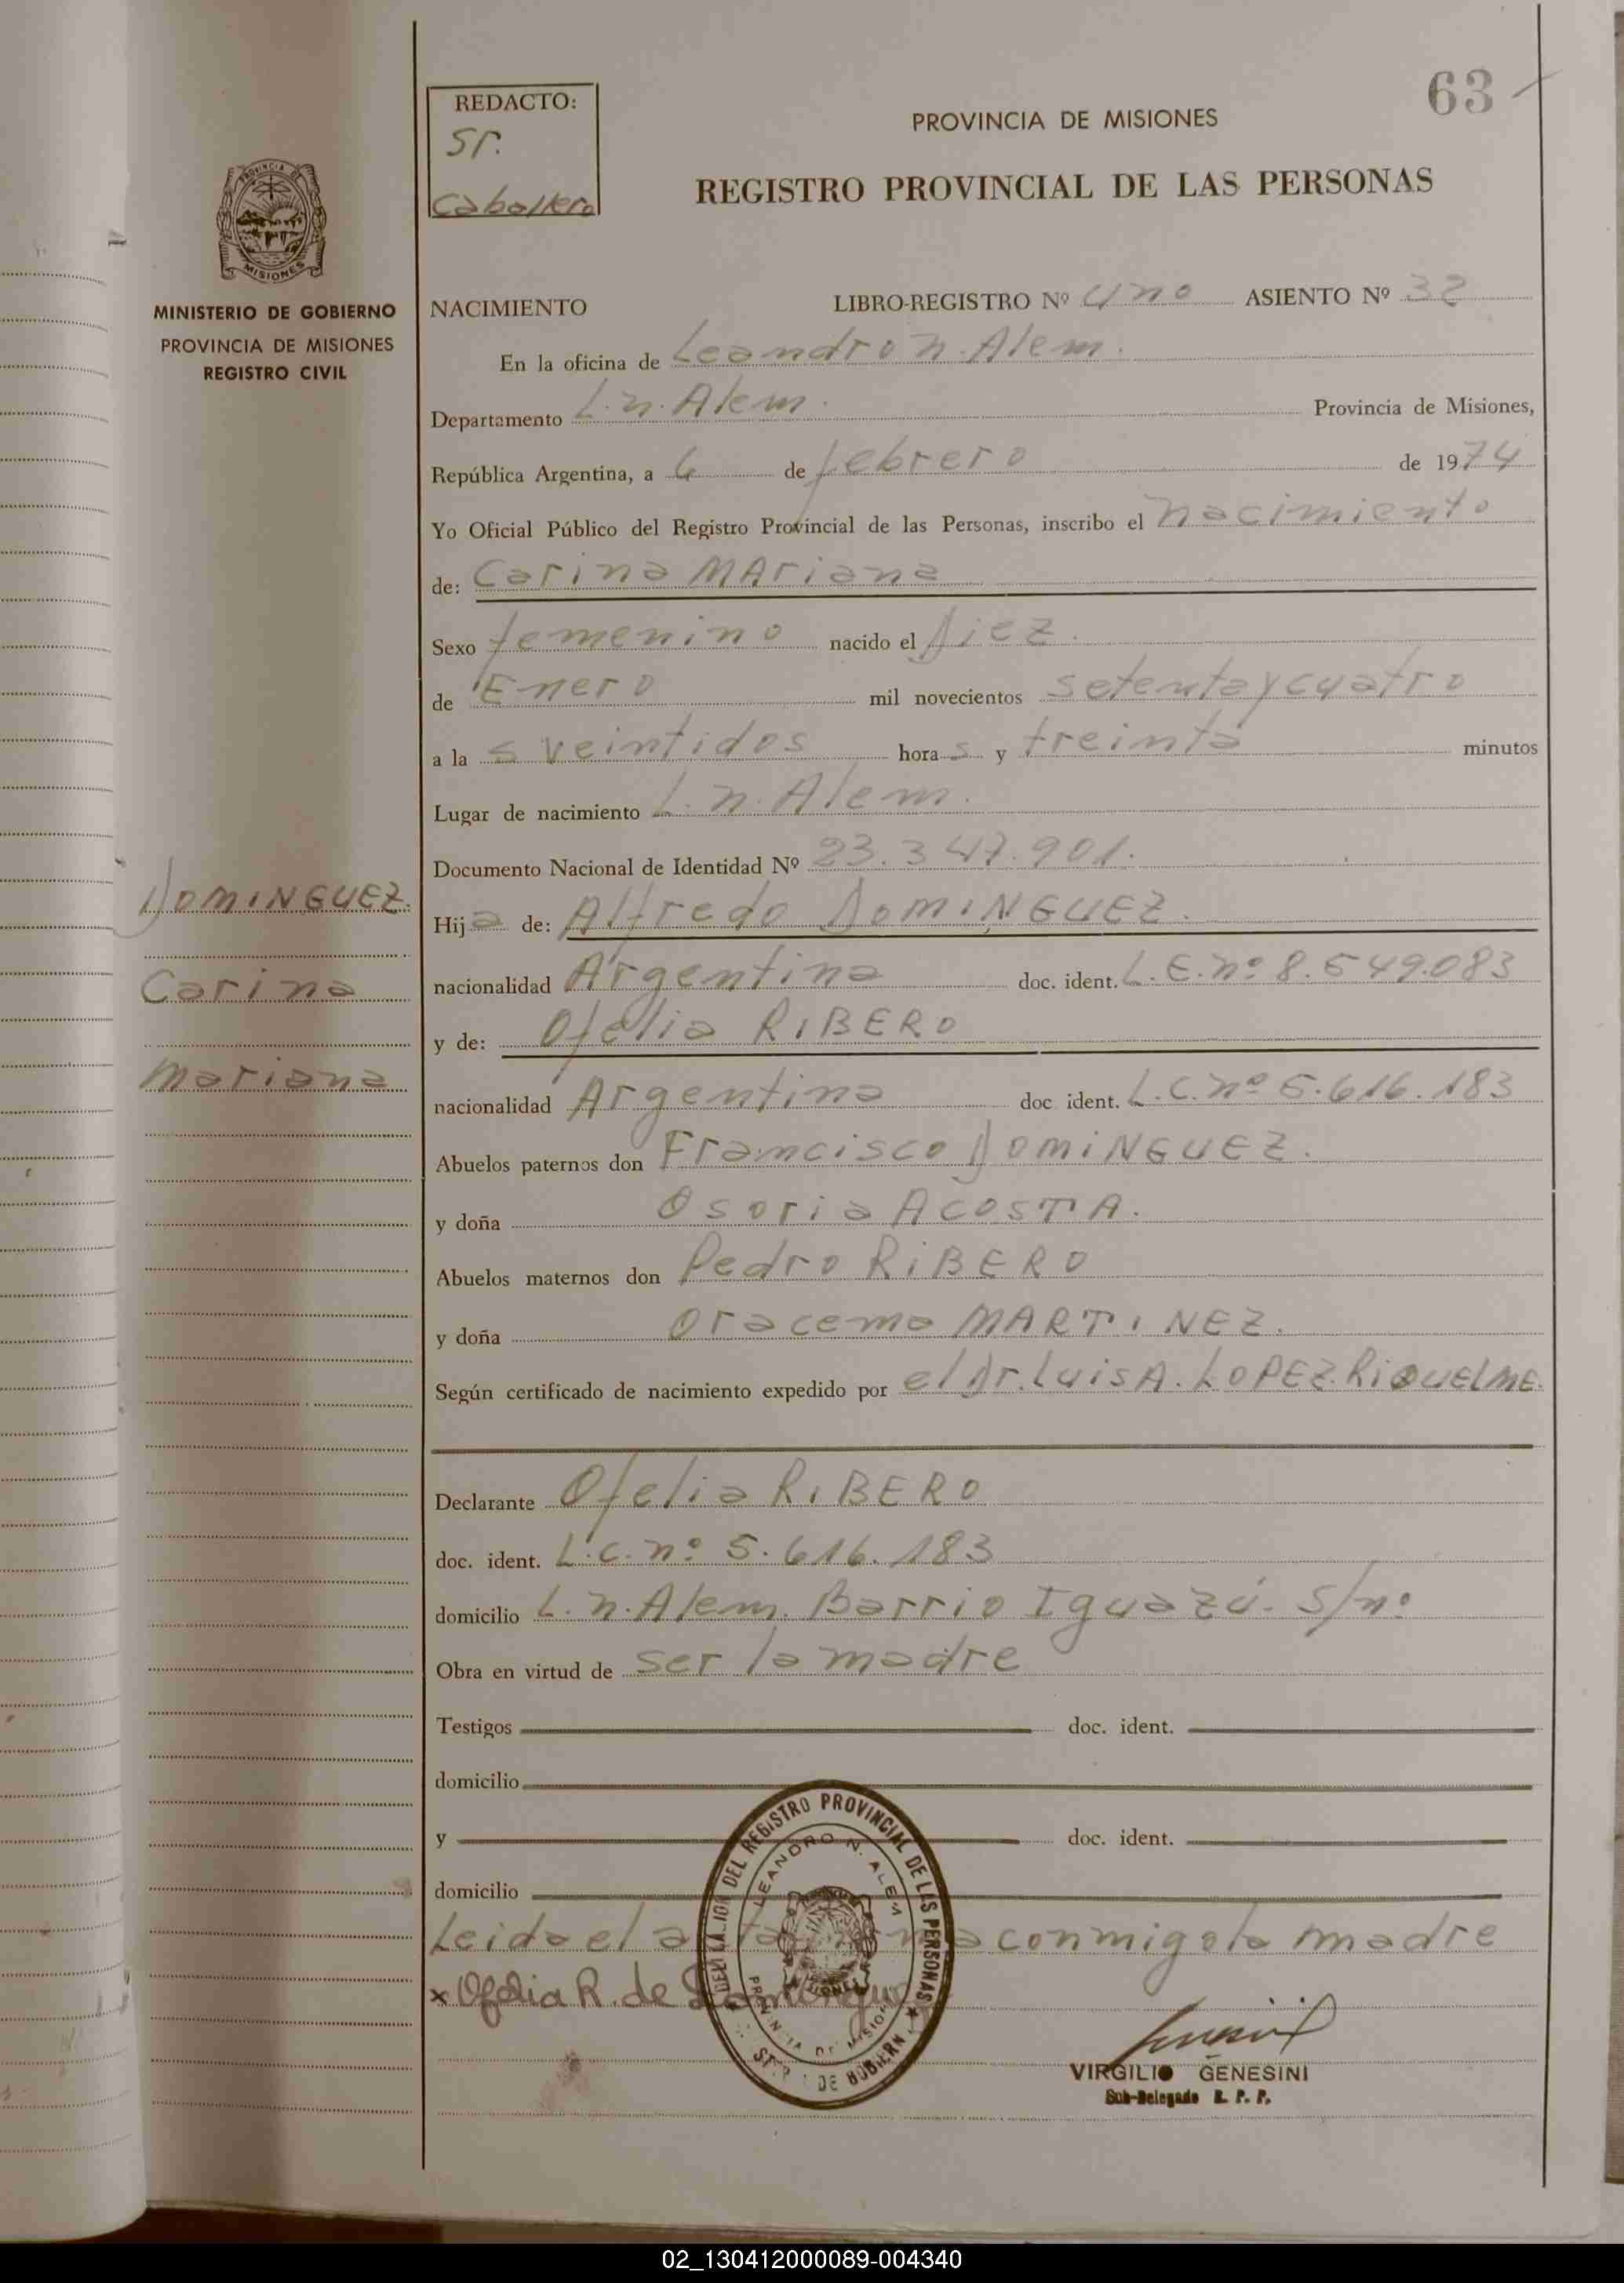 63
REDACTO:
Sr.
Caballero
PROVINCIA DE MISIONES
REGISTRO PROVINCIAL DE LAS PERSONAS
PROVINCIA DE
MISIONES
MINISTERIO DE GOBIERNO
PROVINCIA DE MISIONES
REGISTRO CIVIL
NACIMIENTO LIBRO-REGISTRO Nº uno ASIENTO Nº 32
En la oficina de Leandro n. Alem.
Departamento L. n. Alem. Provincia de Misiones,
República Argentina, a 6 de febrero de 1974
Yo Oficial Público del Registro Provincial de las Personas, inscribo el nacimiento
de: Carina MAriana
Sexo femenino nacido el Diez.
de Enero mil novecientos setenta y cuatro
a la s veintidos hora s y treinta minutos
Lugar de nacimiento L. n. Alem.
Documento Nacional de Identidad Nº 23.347.901.
DOMINGUEZ.
Carina
Mariana
Hija de: Alfredo DOMINGUEZ.
nacionalidad Argentina doc. ident. L.E. nº 8.549.083
y de: Ofelia RIBERO
nacionalidad Argentina doc ident. L.C. nº 5.616.183
Abuelos paternos don Francisco DOMINGUEZ.
y doña Osoria ACOSTA.
Abuelos maternos don Pedro RIBERO
y doña Oracema MARTINEZ.
Según certificado de nacimiento expedido por el Dr. Luis A. LOPEZ RIQUELME.
Declarante Ofelia RIBERO
doc. ident. L.C. nº 5.616.183
domicilio L. n. Alem. Barrio Iguazú. S/nº
Obra en virtud de ser la madre
Testigos doc. ident.
domicilio
y doc. ident.
domicilio
Leida el acta conmigo la madre
x Ofelia R. de Dominguez
DEL REGISTRO PROVINCIAL DE LAS PERSONAS
LEANDRO N. ALEM
VIRGILIO GENESINI
Sub-Delegado R. P. P.
02_130412000089-004340